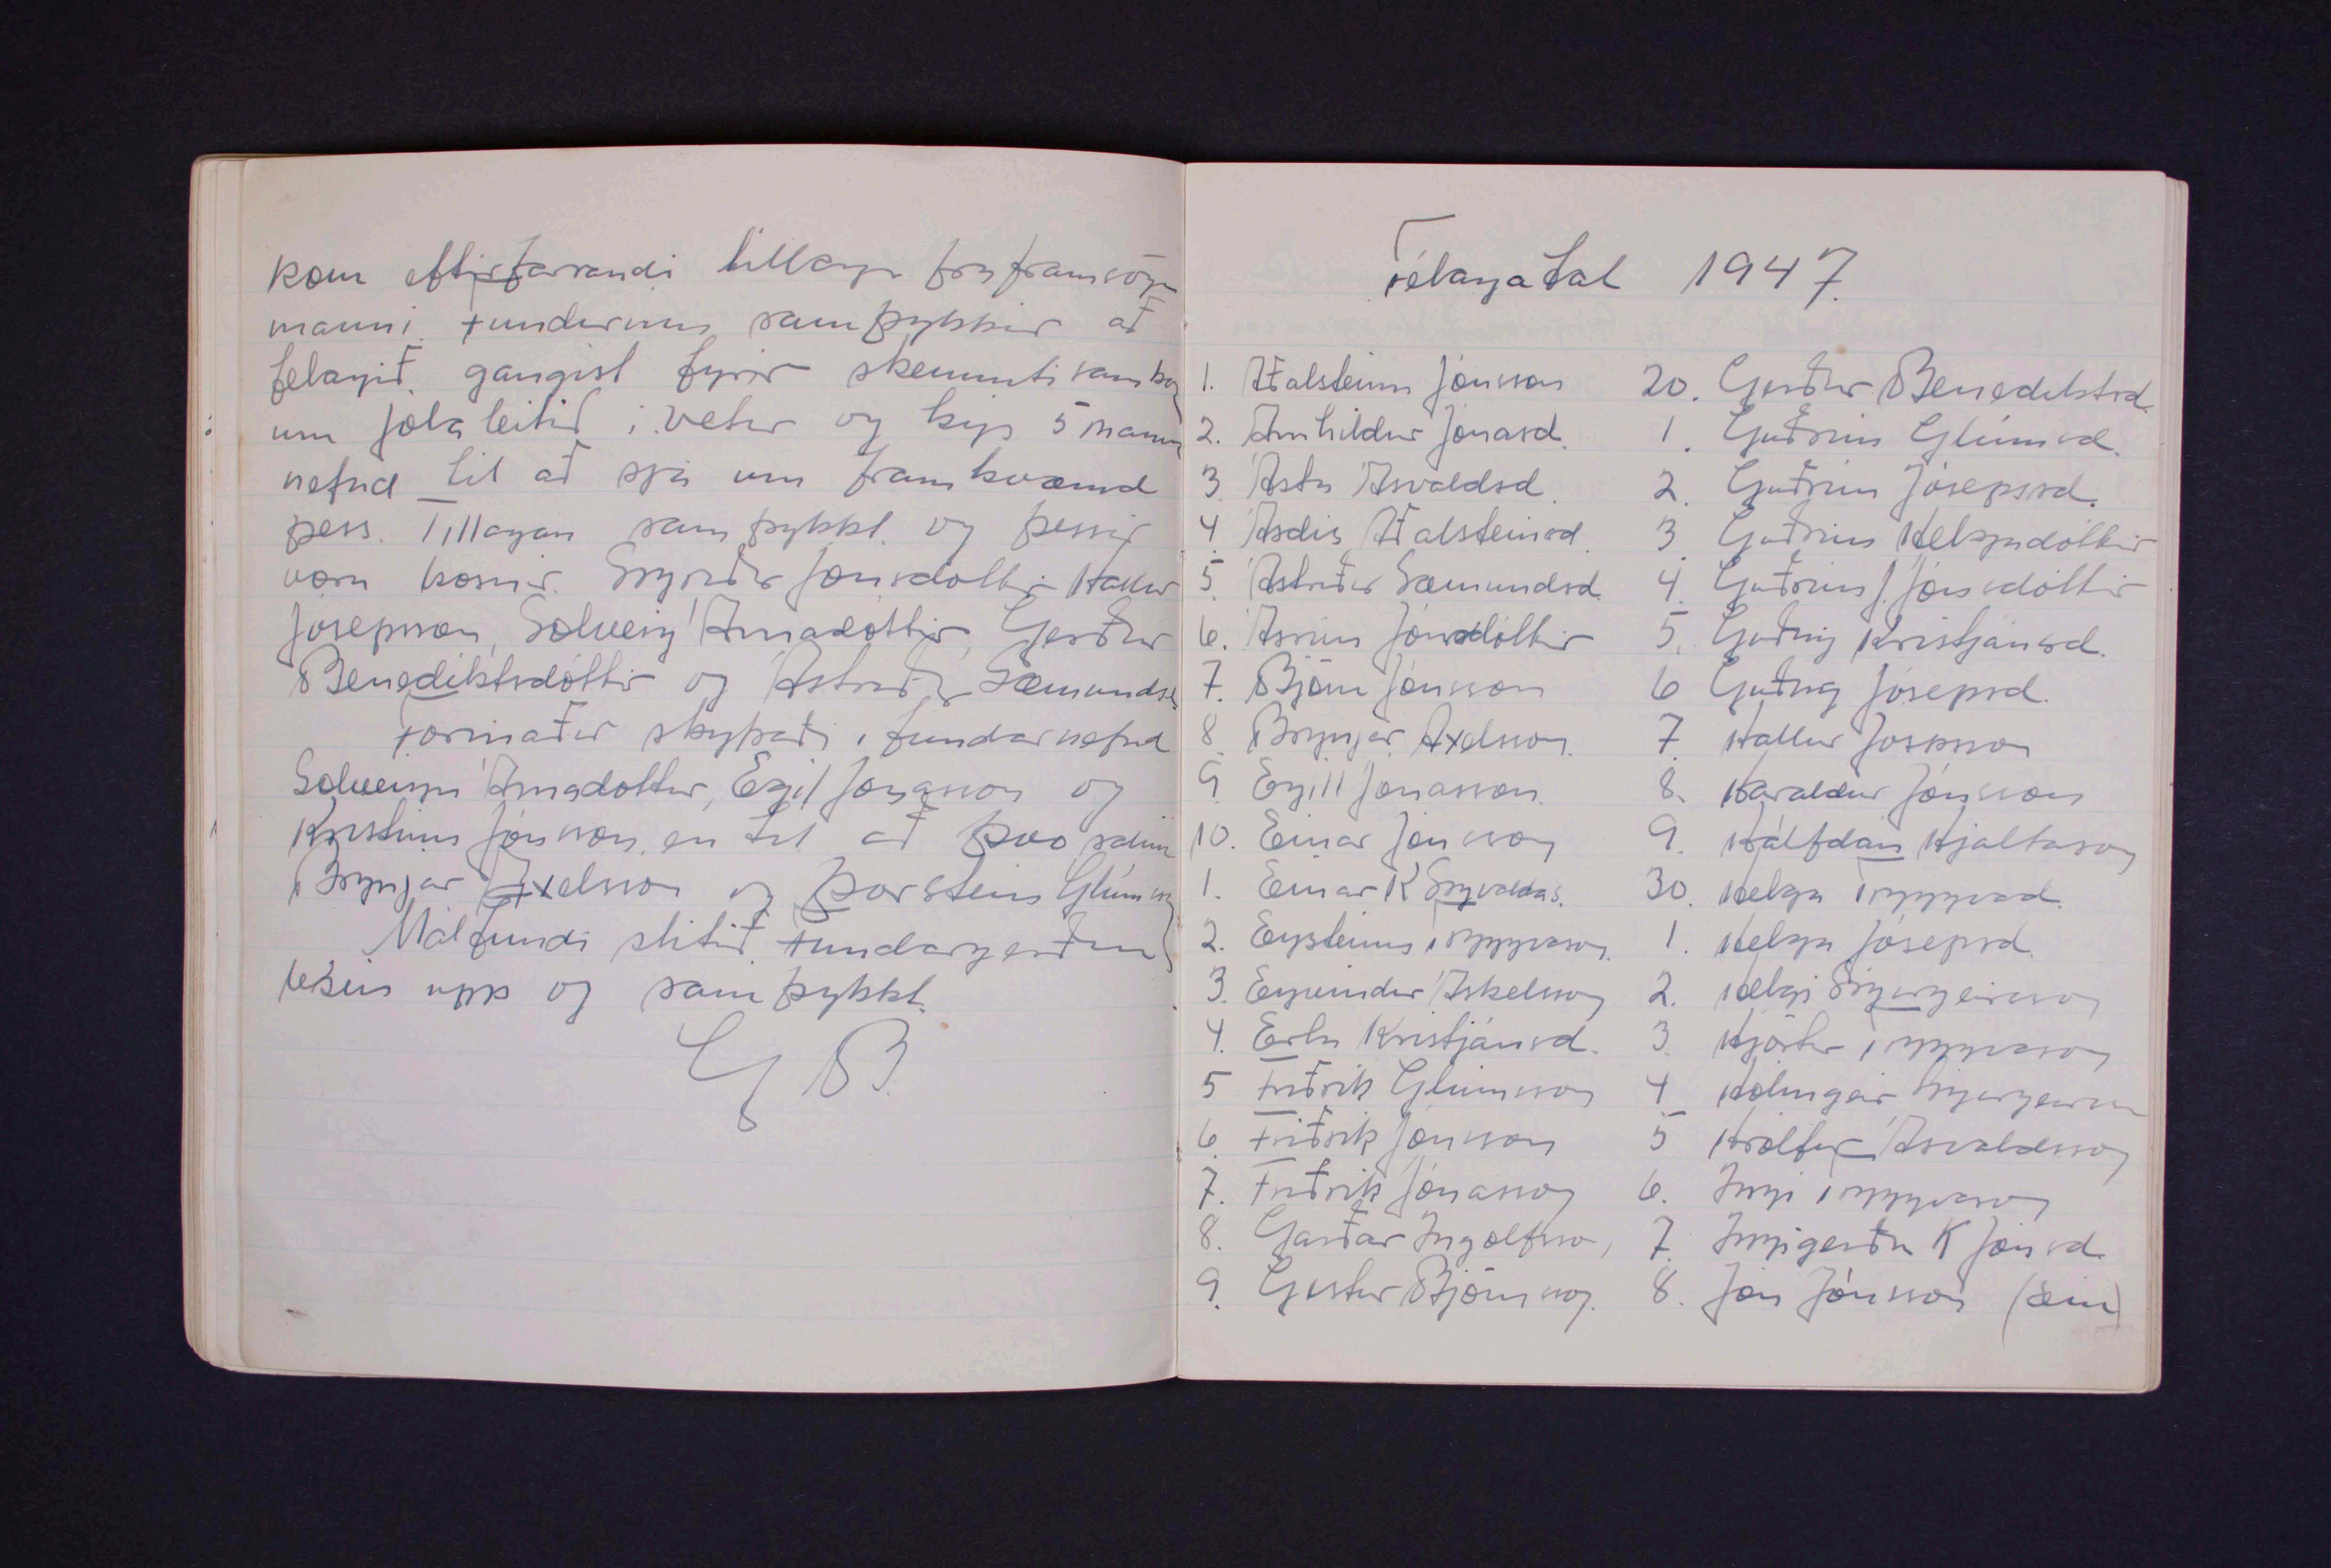 kom eftirfarandi tillaga frá framsögu
manni. Fundurinn samþykkir að
felagið gangist fyrir skemmtisamko
um jóla leitið i vetur og kjósi 5 manna
nefnd til að sjá um framkvæmd
þess. Tillagan samþykkt og þessir
voru kosnir. Sigríður Jónsdóttir Hallur
Jósepsson, Solveig Árnadóttir, Gerður
Benediktsdóttir og Ástríður Sæmundsd.
Formaður skipaði i fundarnefnd
Solveigu Árnadóttur, Egil Jónasson og
Kristinn Jónsson, en til að þvo salinn
Brynjar Axelsson og Þorstein Glúmsson
Málfundi slitið. Fundargerðin
lesin upp og samþykkt.
G B.
Félagatal 1947.
1. Aðalsteinn Jónsson
2. Arnhildur Jónasd.
3. Ásta Ásvaldsd.
4. Ásdís Aðalsteinsd.
5. Ástríður Sæmundsd.
6. Ásrún Jónsdóttir
7. Björn Jónsson
8. Brynjar Axelsson.
9. Egill Jónasson.
10. Einar Jónsson
1. Einar K Sigvaldas.
2. Eysteinn Tryggvason.
3. Eyvindur Áskelsson
4. Erla Kristjánsd.
5 Friðrik Glúmsson
6. Friðrik Jónsson
7. Friðrik Jónasson
8. Garðar Ingólfsso,
9. Gestur Björnsson.
20. Gerður Benediktsd.
1. Guðrún Glúmsd.
2. Guðrún Jósepsd.
3. Guðrún Helgadóttir
4. Guðrún J. Jónsdóttir
5. Guðný Kristjánsd.
6 Guðný Jósepsd.
7. Hallur Jósepsson
8. Haraldur Jónsson
9. Hálfdan Hjaltason
30. Helga Tryggvad.
1. Helga Jósepsd.
2. Helgi Sigurgeirsson
3. Hjörtur Tryggvason
4 Hólmgeir Sigurgeirsson
5 Hrólfur Ásvaldsson
6. Ingi Tryggvason
7. Ingigerður K Jónsd.
8. Jón Jónsson